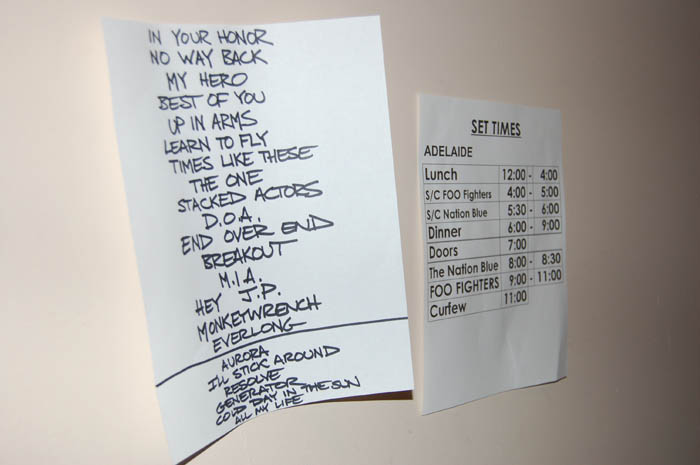 IN YOUR HONOR
NO WAY BACK
MY HERO
BEST OF YOU
UP IN ARMS
LEARN TO FLY
TIMES LIKE THESE
THE ONE
STACKED ACTORS
D.O.A.
END OVER END
BREAKOUT
M.I.A.
HEY J.P.
MONKEYWRENCH
EVERLONG
AURORA
I'LL STICK AROUND
RESOLVE
GENERATOR
COLD DAY IN THE SUN
ALL MY LIFE
SET TIMES
ADELAIDE
Lunch 12:00 - 4:00
S/C FOO Fighters 4:00 - 5:00
S/C Nation Blue 5:30 - 6:00
Dinner 6:00 - 9:00
Doors 7:00
The Nation Blue 8:00 - 8:30
FOO FIGHTERS 9:00 - 11:00
Curfew 11:00